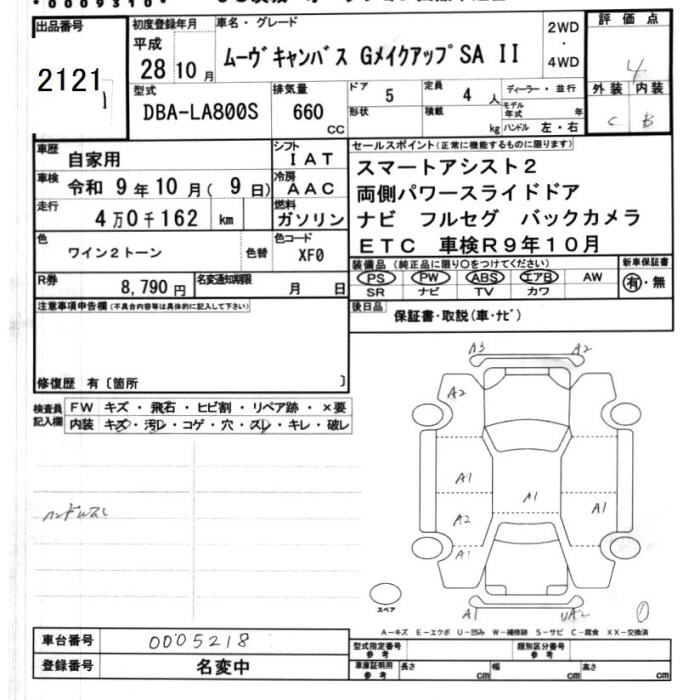 *0009310*
出品番号
2121
初度登録年月
平成
28 10 月
車名・グレード
ムーヴキャンバス GメイクアップSA II
2WD
・
4WD
評価点
4
外装 内装
C B
型式
DBA-LA800S
排気量
660
CC
ドア
5
形状
定員
4 人
積載
kg
ディーラー・並行
モデル年式 年
ハンドル 左・右
車歴
自家用
シフト
IAT
車検
令和 9年10月( 9日)
冷房
AAC
走行
4万0千162 km
燃料
ガソリン
色
ワイン2トーン
色替
色コード
XF0
R券
8,790円
名変通知期限
月 日
セールスポイント(正常に機能するものに限ります)
スマートアシスト2
両側パワースライドドア
ナビ フルセグ バックカメラ
ETC 車検R9年10月
装備品(純正品に限り○をつけてください)
PS PW ABS エアB AW
SR ナビ TV カワ
新車保証書
有・無
後日品
保証書・取説(車・ナビ)
注意事項申告欄(不具合内容等は具体的に記入して下さい)
修復歴 有〔箇所 〕
検査員
記入欄
FW キズ・飛石・ヒビ割・リペア跡・×要
内装 キズ・汚レ・コゲ・穴・スレ・キレ・破レ
A3 A2
A2
A1
A1
A1
A2
A1
スペア
A1 UA2
①
A-キズ E-エクボ U-凹み W-補修跡 S-サビ C-腐食 XX-交換済
車台番号
0005218
登録番号
名変中
型式指定番号
参考
類別区分番号
参考
車庫証明用
参考
長さ cm 幅 cm 高さ cm